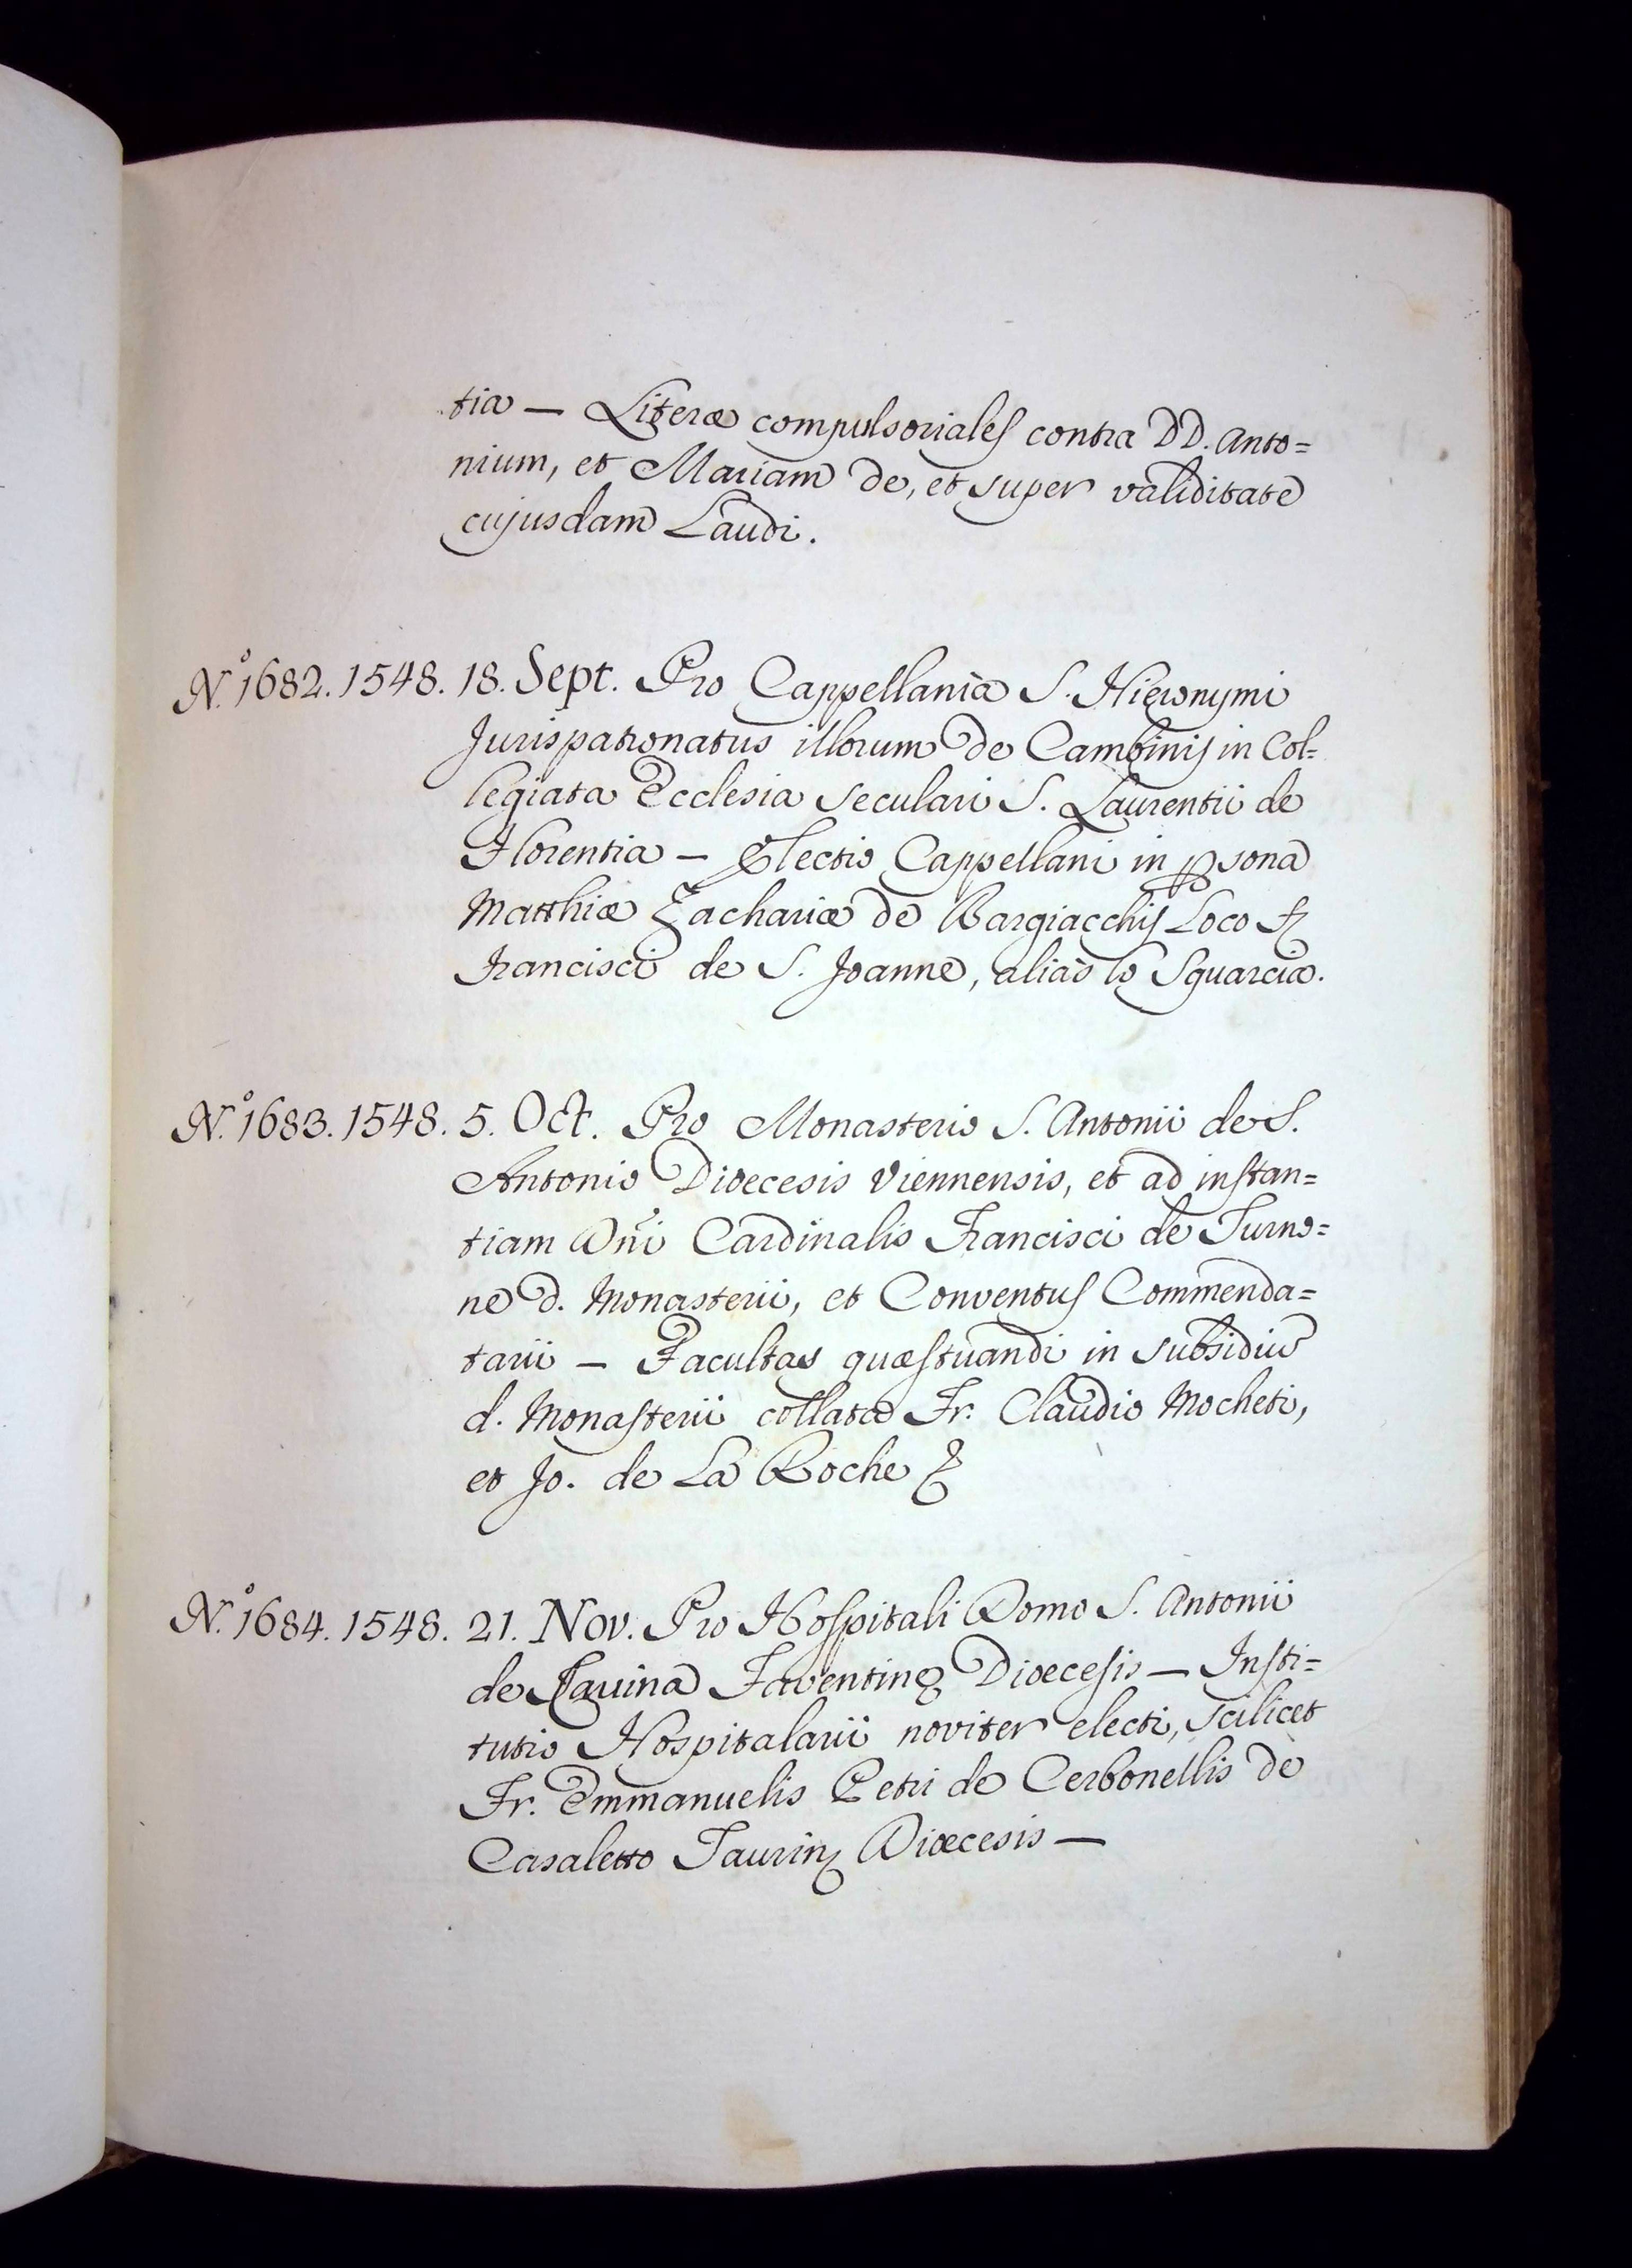 tia — Literæ compulsoriales contra DD. Anto=
nium, et Mariam de, et super validitate
cujusdam Laudi.
N.º 1682. 1548. 18. Sept. Pro Cappellania S. Hieronymi
Jurispatronatus illorum de Cambinis in Col=
legiata Ecclesia seculari S. Laurentii de
Florentia — Electio Cappellani in ꝑsona
Matthiæ Zachariæ de Bargiacchis Loco
Francisci de S. Joanne, alias lo Squarcia.
N.º 1683. 1548. 5. Oct. Pro Monasterio S. Antonii de S.
Antonio Dioecesis Viennensis, et ad instan=
tiam Dñi Cardinalis Francisci de Turno=
ne d. Monasterii, et Conventus Commenda=
tarii — Facultas quæstuandi in subsidiū
d. Monasterii collata Fr. Claudio Mocheti,
et Jo. de La Roche
N.º 1684. 1548. 21. Nov. Pro Hospitali Domo S. Antonii
de Faventinę Dioecesis — Insti=
tutio Hospitalarii noviter electi, scilicet
Fr. Emmanuelis Petri de Cerbonellis de
Casaletto Taurin. Dioecesis —